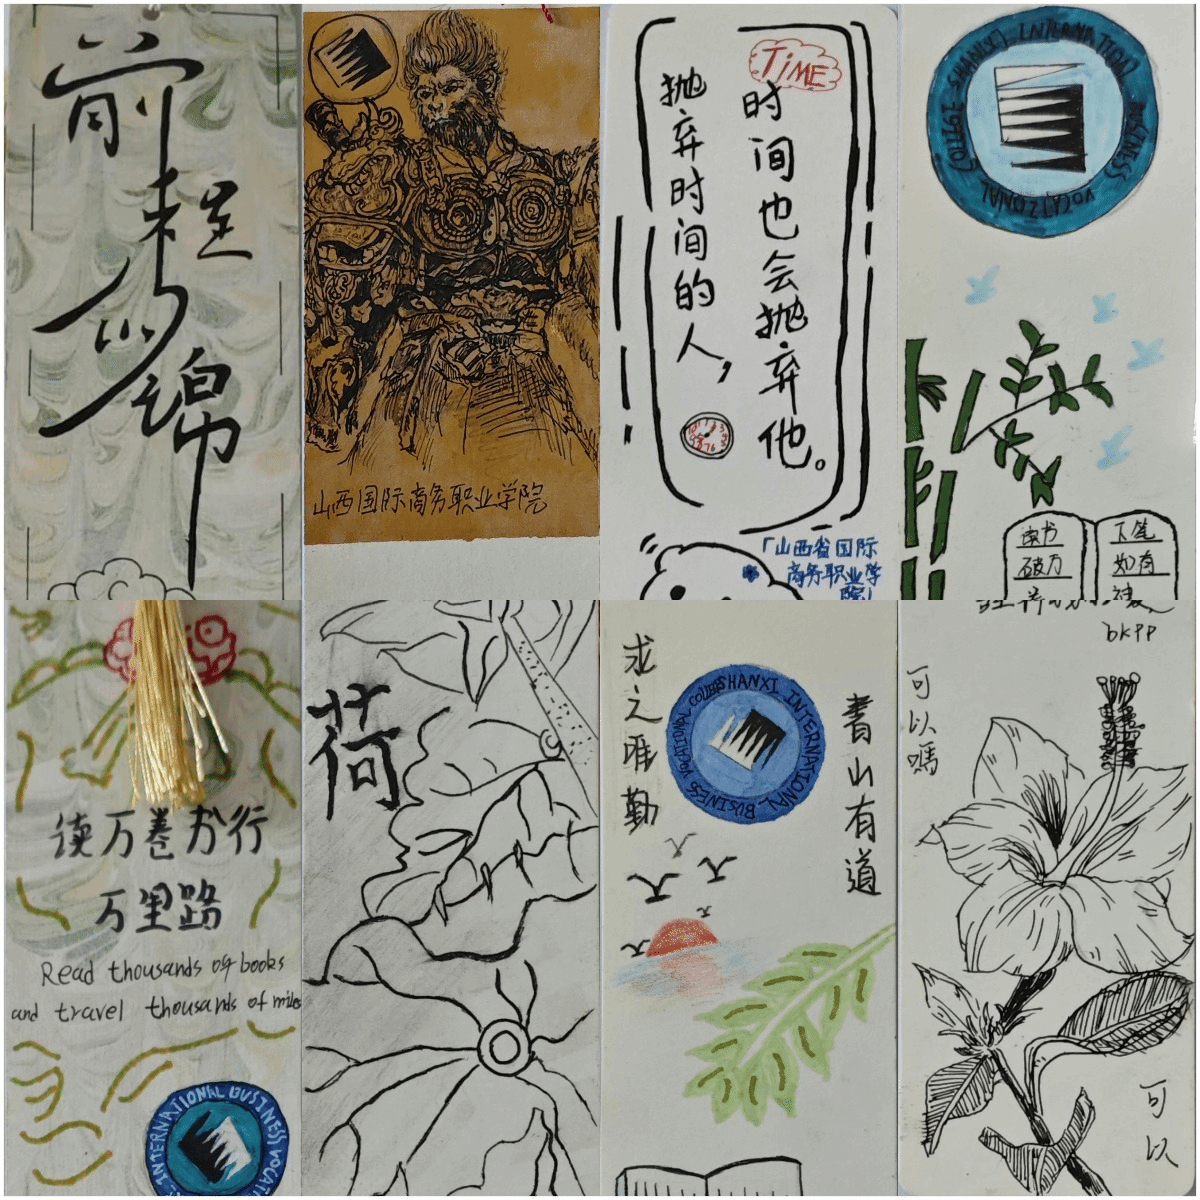 前程似锦
山西国际商务职业学院
TIME
时间也会抛弃他。
抛弃时间的人，
「山西省国际
商务职业学
院」
SHANXI INTERNATIONAL BUSINESS VOCATIONAL COLLEGE
读书
破万
下笔
如有
读万卷书行
万里路
Read thousands of books
and travel thousands of miles
INTERNATIONAL BUSINESS VOCATI
荷
書山有道
求之唯勤
SHANXI INTERNATIONAL BUSINESS VOCATIONAL COLLEGE
bKPP
可以嗎
可以